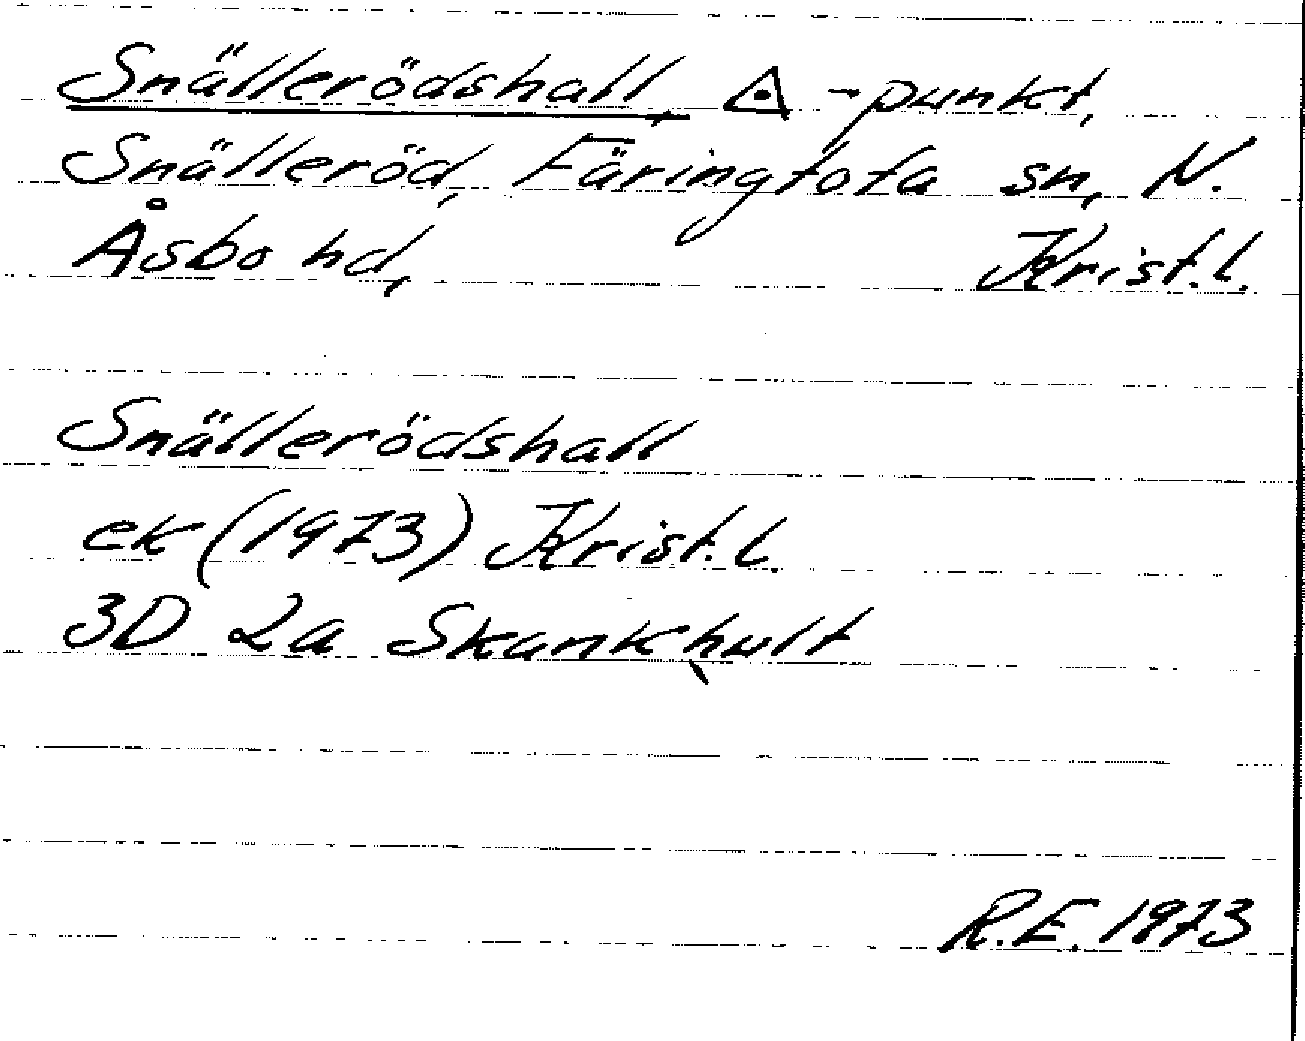 Snällerödshall, △-punkt,
Snälleröd, Färingtofa sn, N.
Åsbo hd, Krist.l.
Snällerödshall
ek (1973) Krist.l.
3D 2a Skankhult
R.E. 1973